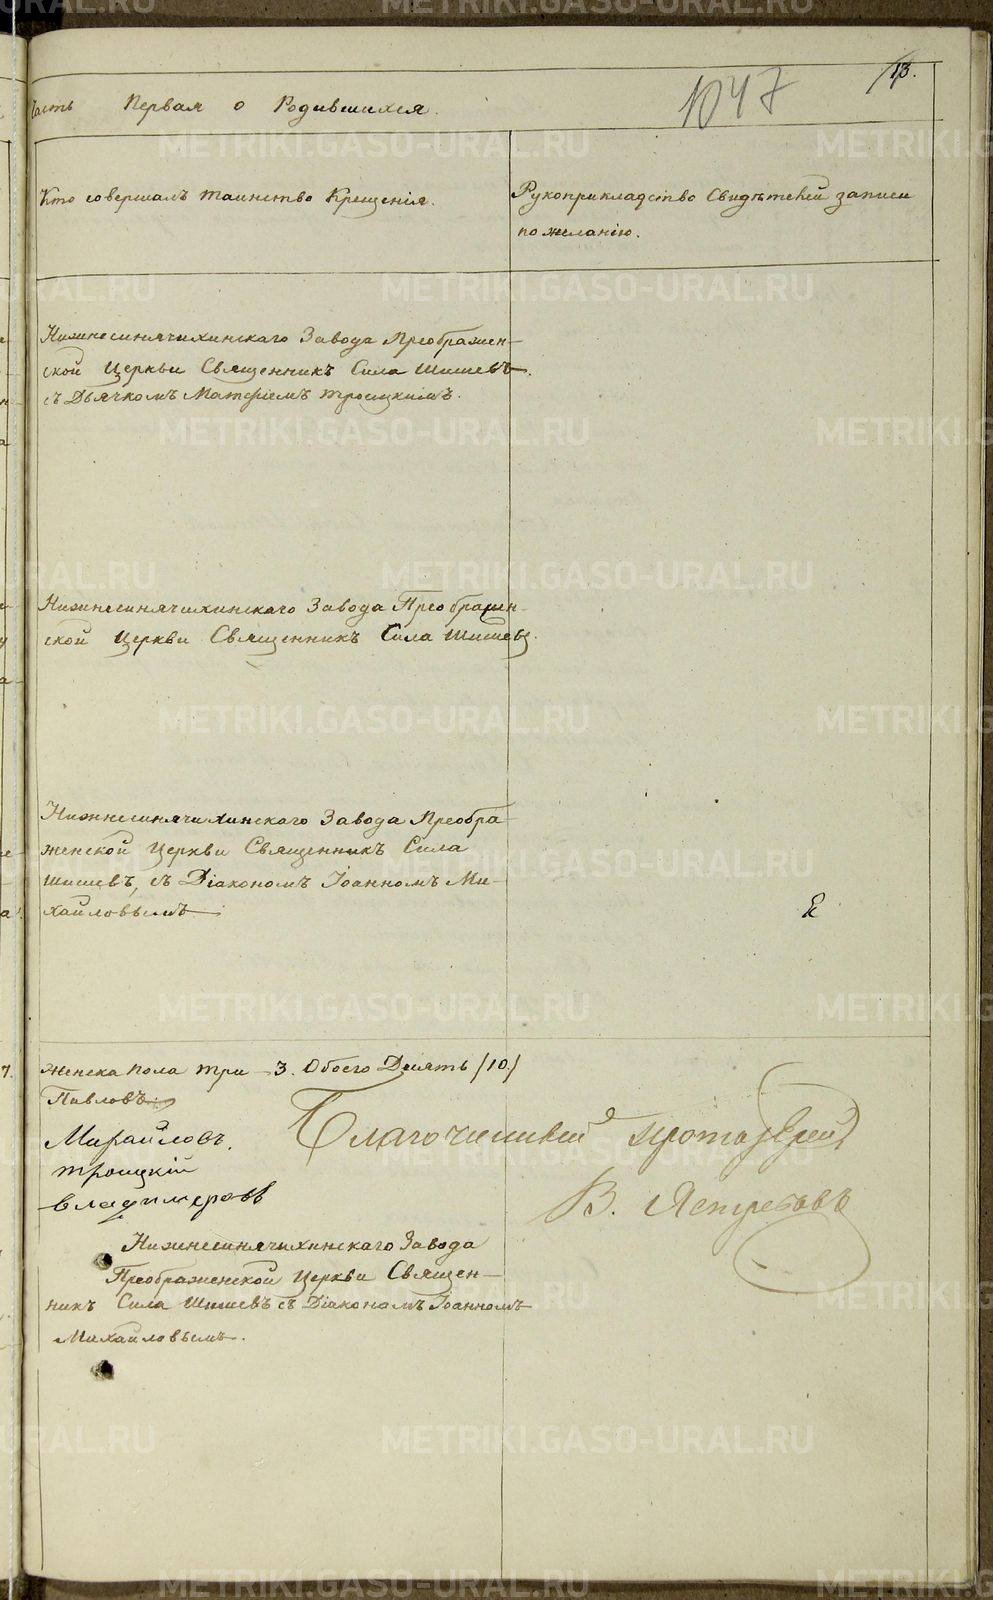 13.
1047
Часть Первая о Родившихся.
Кто совершалъ таинство Крещенія.
Рукоприкладство Свидѣтелей записи
по желанію.
Нижнесинячихинскаго Завода Преображен-
ской Церкви Священникъ Сила Шишевъ
съ Дьячкомъ Матфіемъ Троицкимъ.
Нижнесинячихинскаго Завода Преображен-
ской Церкви Священникъ Сила Шишевъ.
Нижнесинячихинскаго Завода Преобра-
женской Церкви Священникъ Сила
Шишевъ, съ Діакономъ Іоанномъ Ми-
хайловымъ
женска пола три – 3. Обоего Десять /10/
Павловъ
Михайловъ.
Троицкій
Владимеровъ
Благочинный протоіерей
В. Ястребовъ
Нижнесинячихинскаго Завода
Преображенской Церкви Священ-
никъ Сила Шишевъ съ Діакономъ Іоанномъ
Михайловымъ.
METRIKI.GASO-URAL.RU